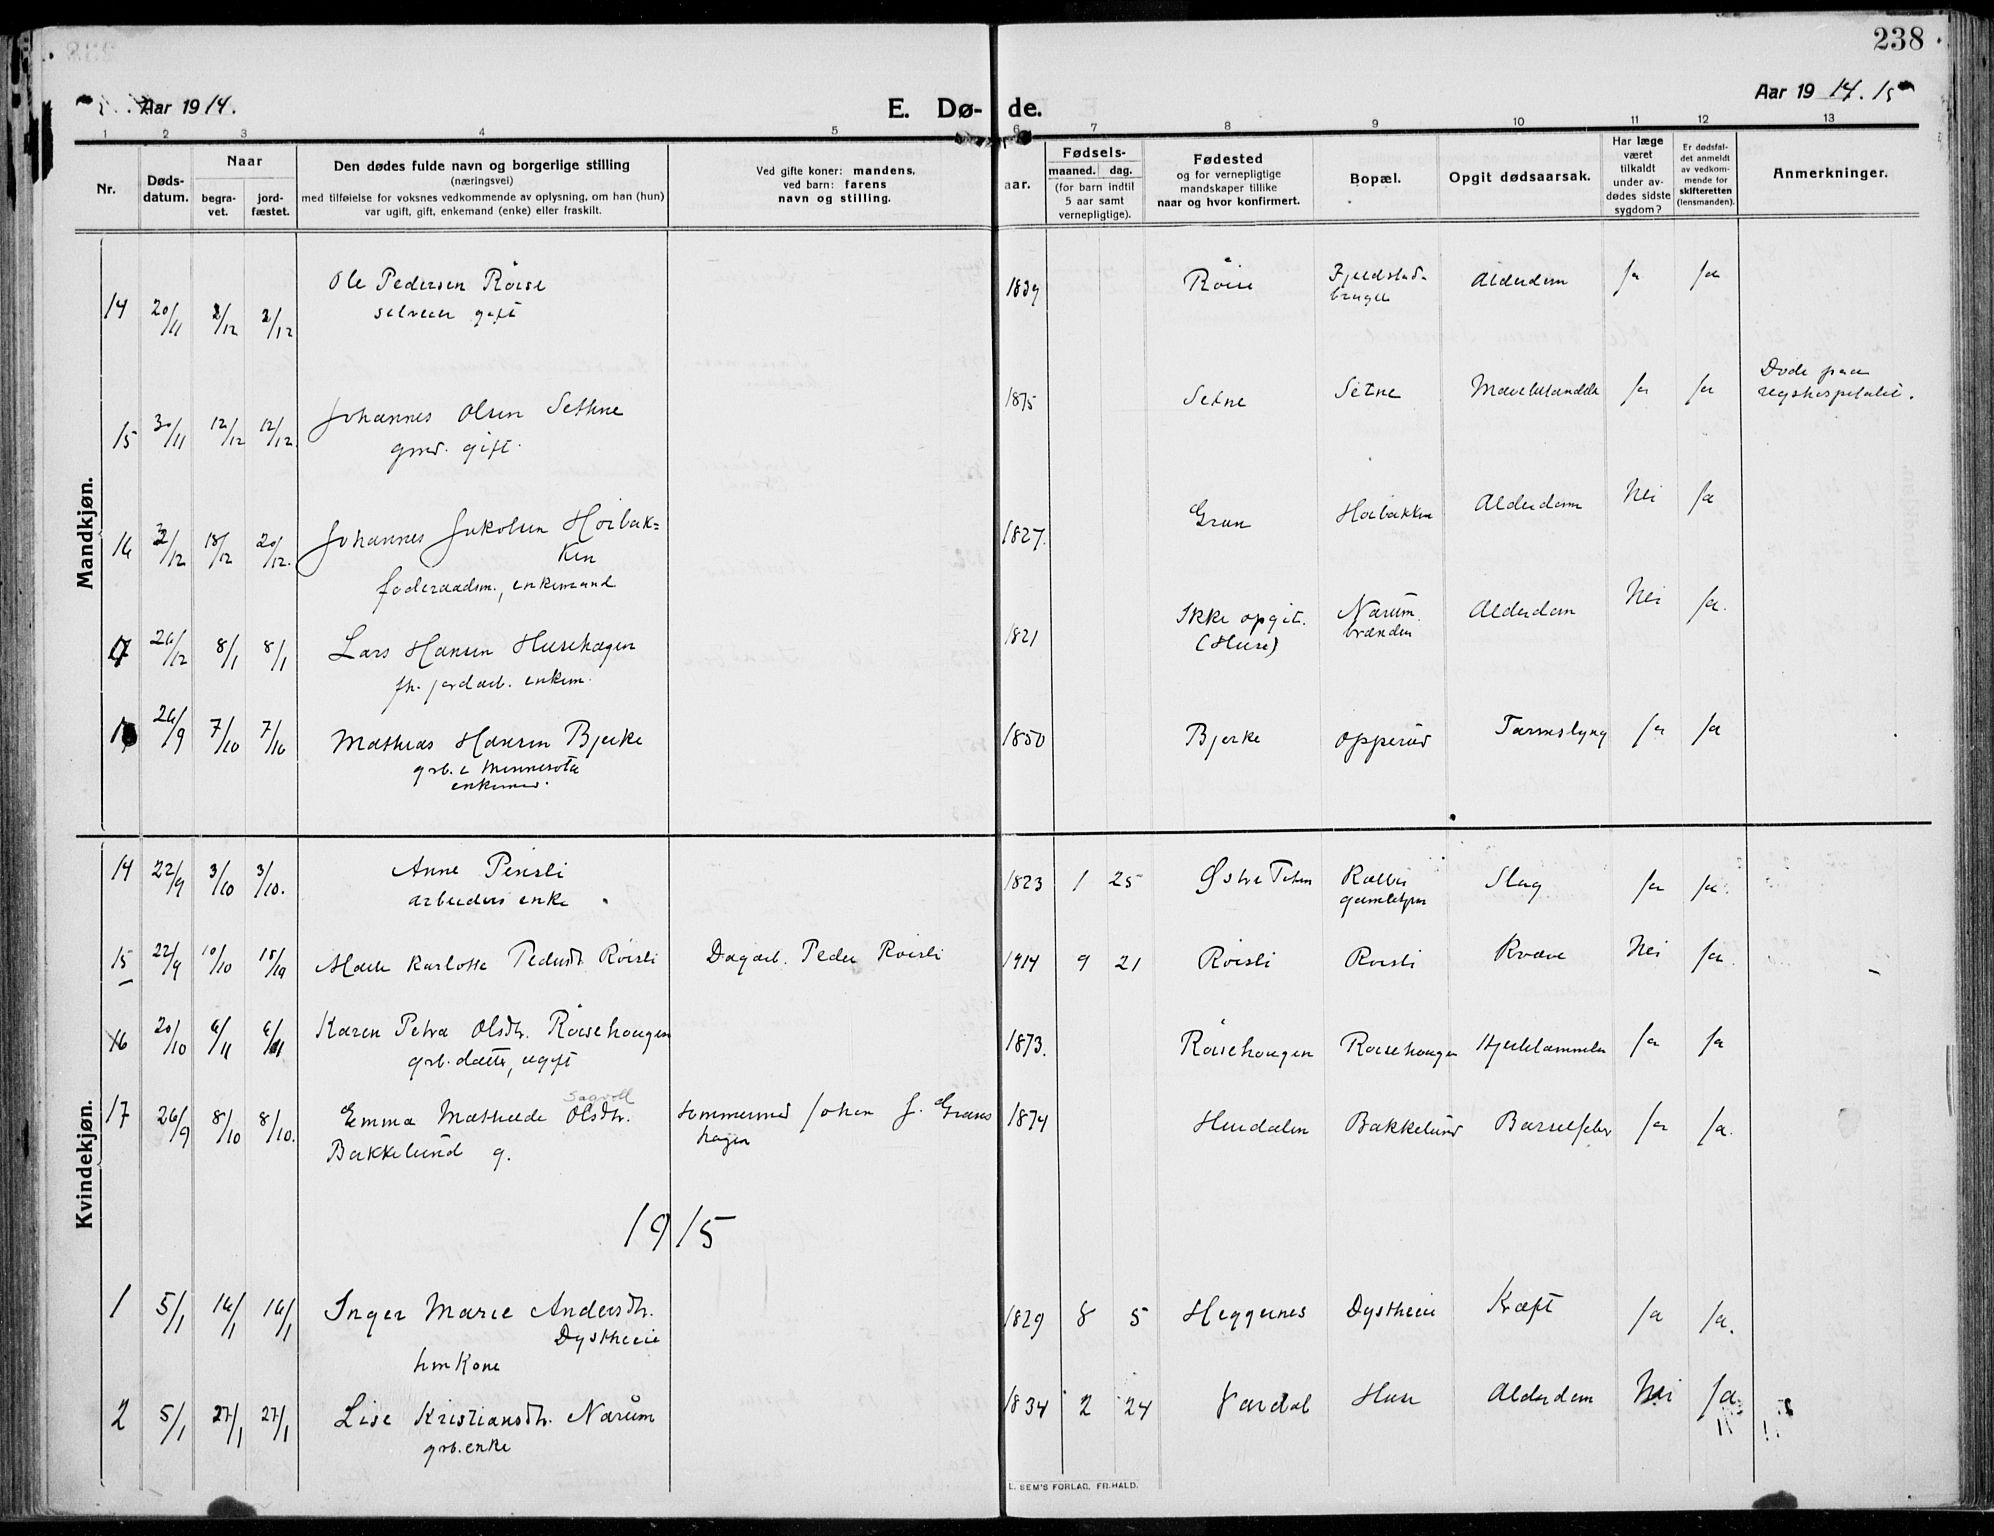 238
Aar 1914.
E. Dø-
de.
Aar 1914. 15
1 2 3 4 5 6 7 8 9 10 11 12 13
Nr.
Døds-
datum.
Naar
begra-
vet.
jord-
fæstet.
Den dødes fulde navn og borgerlige stilling
(næringsvei)
med tilføielse for voksnes vedkommende av oplysning, om han (hun)
var ugift, gift, enkemand (enke) eller fraskilt.
Ved gifte koner: mandens,
ved barn: farens
navn og stilling.
aar.
Fødsels-
maaned. dag.
(for barn indtil
5 aar samt
vernepligtige).
Fødested
og for vernepligtige
mandskaper tillike
naar og hvor konfirmert.
Bopæl.
Opgit dødsaarsak.
Har læge
været
tilkaldt
under av-
dødes sidste
sygdom?
Er dødsfal-
det anmeldt
av vedkom-
mende for
skifteretten
(lensmanden).
Anmerkninger.
Mandkjøn.
14 20/11 2/12 2/12 Ole Pedersen Röise 1839 Röise Fjeldstad- Alderdom ja ja
selveier gift
brugen
15 30/11 12/12 12/12 Johannes Olsen Sethne 1875 Setne Setne ja ja Døde paa
gmd. gift.
rigshospitalet.
16 12/12 18/12 20/12. Johannes Jakobsen Høibak= 1827. Gran Høibakken Alderdom Nei ja
ken
føderaadsm., enkemand
17 26/12 8/1 8/1 Lars Hansen Husehagen 1821 Ikke opgit. Nærum Alderdom Nei ja.
fh. jordarb. enkem.
(Huse) brænden
26/9 7/10 7/10 Mathias Hansen Bjerke 1850 Bjerke Opperud Tarmslyng ja ja
grb. i Minnesota
enkemd.
Kvindekjøn.
14 22/9 3/10 3/10. Anne Pinsli 1823 1 25 Østre Toten Slag ja ja.
arbeiders enke
gamlehjem
15 22/9 10/10 18/10 Marte Karlotte Pedersdt. Röisli Dagarb. Peder Roisli 1914 9 21 Röisli Roisli Nei ja.
16 20/10 6/11 6/11 Karen Petra Olsdtr. Röisehaugen 1873. Röisehaugen Roisehaugen Hjertelammelse ja ja
grb. datter, ugift
Sagvoll
17 26/9 8/10 8/10. Emma Mathilde Olsdtr. tømmermd Johan J. Grans 1874 Hurdalen Bakkelund Barselfeber ja ja.
Bakkelund g.
hagen
1915
1 5/1 16/1 16/1 Inger Marie Andersdtr. 1829 8 5 Heggernes Dystheie Kræft ja ja.
Dystheie
hmkone
2 5/1 27/1 27/1 Lise Kristiansdtr. Nærum 1834 2 24 Vardal Huse Alderdom Nei ja
grb. enke
L. SEM'S FORLAG, FR.HALD.